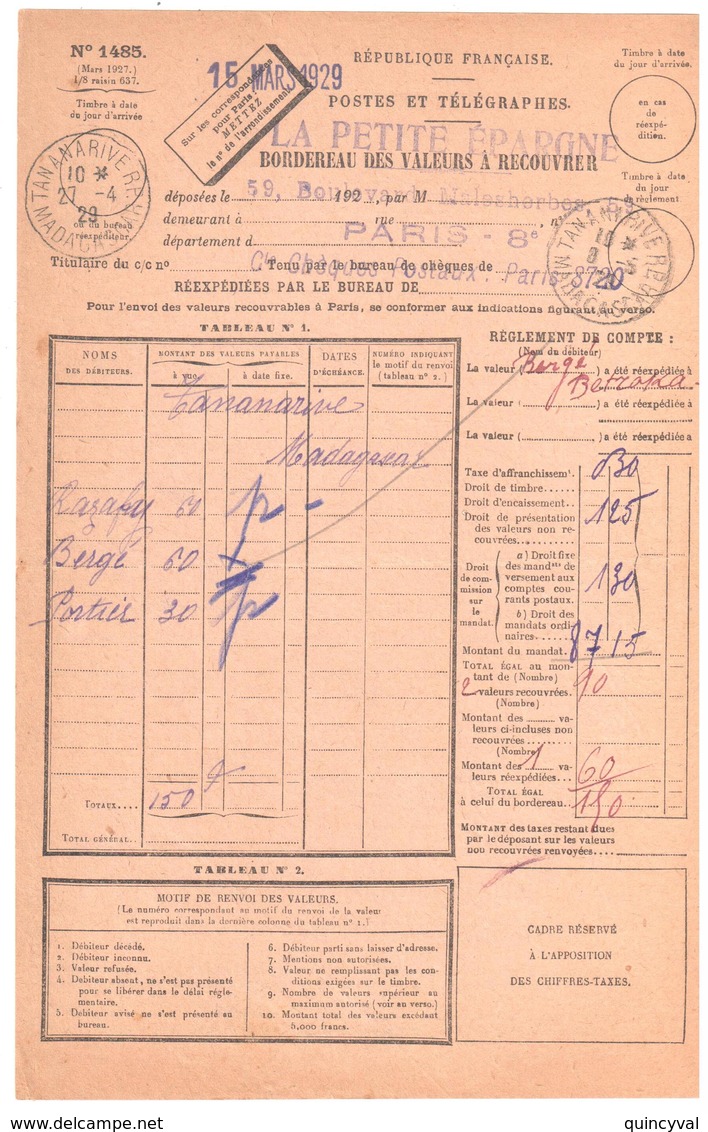 Nº 1485.
(Mars 1927.)
1/8 raisin 637.
Timbre à date
du jour d'arrivée
TANANARIVE R.P.
10 *
27 -4
29
MADAGASCAR
ou du bureau
réexpéditeur.
15 MARS 1929
Sur les correspondances
pour Paris,
METTEZ
le nº de l'arrondissement
RÉPUBLIQUE FRANÇAISE.
POSTES ET TÉLÉGRAPHES.
LA PETITE ÉPARGNE
BORDEREAU DES VALEURS À RECOUVRER
Timbre à date
du jour d'arrivée.
en cas
de
réexpé-
dition.
Timbre à date
du jour
de règlement
TANANARIVE R.P.
10 *
MADAGASCAR
déposées le 192 , par M
59, Boulevard Malesherbes, 59
demeurant à rue , nº
PARIS - 8e
département d
Titulaire du c/c nº . Tenu par le bureau de chèques de
Cte Chèques Postaux: Paris 8720
RÉEXPÉDIÉES PAR LE BUREAU DE
Pour l'envoi des valeurs recouvrables à Paris, se conformer aux indications figurant au verso.
TABLEAU Nº 1.
NOMS
DES DÉBITEURS.
MONTANT DES VALEURS PAYABLES
à vue.
à date fixe.
DATES
D'ÉCHÉANCE.
NUMÉRO INDIQUANT
le motif du renvoi
(tableau nº 2.)
Tananarive
Madagascar
Razafy 60
Bergé 60
Portier 30
TOTAUX.... 150
TOTAL GÉNÉRAL
RÈGLEMENT DE COMPTE :
(Nom du débiteur)
La valeur ( Bergé ) a été réexpédiée à
La valeur ( ) a été réexpédiée à
La valeur ( ) a été réexpédiée à
Taxe d'affranchissemt.
Droit de timbre.
Droit d'encaissement. 125
Droit de présentation
des valeurs non re-
couvrées.
Droit
de com-
mission
sur
le
mandat.
a) Droit fixe
des mandats de
versement aux
comptes cou-
rants postaux. 130
b) Droit des
mandats ordi-
naires.
Montant du mandat. 87 15
TOTAL ÉGAL au mon-
tant de (Nombre)
2 valeurs recouvrées. 90
(Nombre)
Montant des va-
leurs ci-incluses non
recouvrées
(Nombre)
Montant des 1 va-
leurs réexpédiées... 60
TOTAL ÉGAL
à celui du bordereau. 150
MONTANT des taxes restant dues
par le déposant sur les valeurs
non recouvrées renvoyées.
TABLEAU Nº 2.
MOTIF DE RENVOI DES VALEURS.
(Le numéro correspondant au motif du renvoi de la valeur
est reproduit dans la dernière colonne du tableau nº 1.)
1. Débiteur décédé.
2. Débiteur inconnu.
3. Valeur refusée.
4. Debiteur absent, ne s'est pas présenté
pour se libérer dans le délai régle-
mentaire.
5. Debiteur avisé ne s'est présenté au
bureau.
6. Débiteur parti sans laisser d'adresse.
7. Mentions non autorisées.
8. Valeur ne remplissant pas les con-
ditions exigées sur le timbre.
9. Nombre de valeurs supérieur au
maximum autorisé (voir au verso.)
10. Montant total des valeurs excédant
5,000 francs.
CADRE RÉSERVÉ
À L'APPOSITION
DES CHIFFRES-TAXES.
quincyval